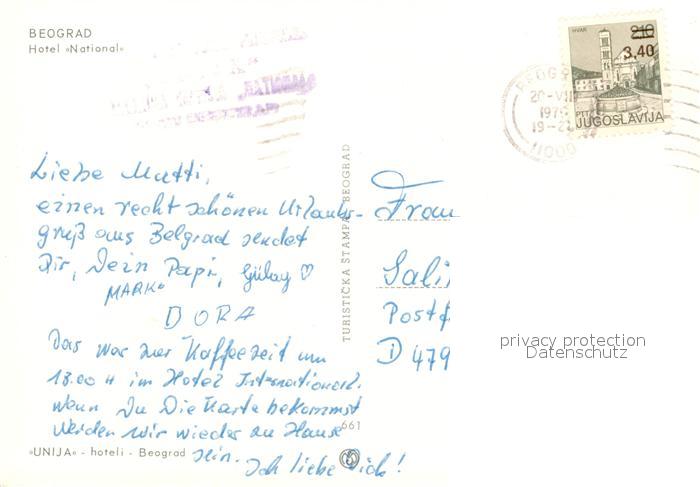 BEOGRAD
Hotel »National«
HVAR
2.10
3,40
PTT
JUGOSLAVIJA
20-VII
197
19-2
11000
Liebe Mutti,
einen recht schönen Urlaubs-
gruß aus Belgrad sendet
Dir, Dein Papi, Gülay ♡
MARK
DORA
Das war zur Kaffeezeit um
18.00 H im Hotel International.
Wenn Du Die Karte bekommst
werden wir wieder zu Hause
sein. Ich liebe Dich!
»UNIJA« - hoteli - Beograd
661
TURISTIČKA ŠTAMPA BEOGRAD
Frau
Sali
Postf
D 479
privacy protection
Datenschutz